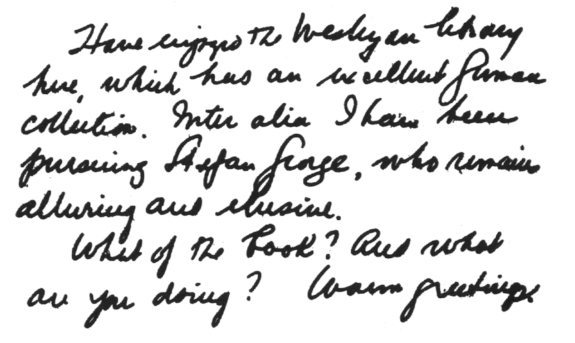 Have enjoyed the Wesleyan library
here, which has an excellent German
collection. Inter alia I have been
pursuing Stefan George, who remains
alluring and elusive.
What of the book? And what
are you doing? Warm greetings